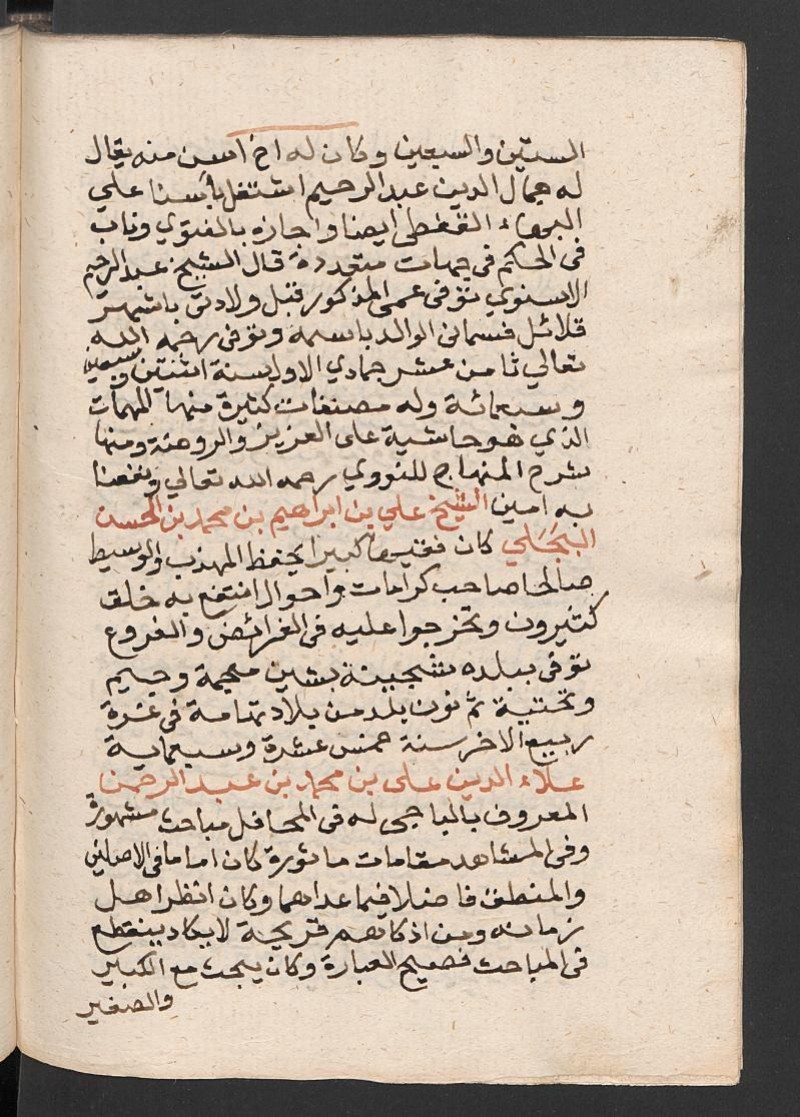 الستين والسبعين وكان له اخ اسن منه يقال
له جمال الدين عبد الرحيم اشتغل بأسنا علي
البهاء القفطي ايضا واجازه بالفتوي وناب
في الحكم في جهات متعددة قال الشيخ عبد الرحيم
الاسنوي توفي عمي المذكور قبل ولادتي باشهر
قلائل فسماني الوالد باسمه وتوفي رحمه الله
تعالي ثامن عشر جمادي الاولي سنة اثنتين وسبعين
وسبعمائة وله مصنفات كثيرة منها المهمات
الذي هو حاشية على العزيز والروضة ومنها
شرح المنهاج للنووي رحمه الله تعالي ونفعنا
به امين الشيخ علي بن ابراهيم بن محمد بن الحسن
البَجَلي كان فقيها كبيرا يحفظ المهذب والوسيط
صالحا صاحب كرامات واحوال انتفع به خلق
كثيرون وتخرجوا عليه في الفرائض والفروع
توفي ببلده شجينة بشين معجمة وجيم
وتحتية ثم نون بلد من بلاد تهامة في غرة
ربيع الاخر سنة خمس عشرة وسبعماية
علاء الدين علي بن محمد بن عبد الرحمن
المعروف بالباجي له في المحافل مباحث مشهورة
وفي المشاهد مقامات ماثورة كان اماما في الاصلين
والمنطق فاضلا فيما عداهما وكان انظر اهل
زمانه ومن اذكاهم قريحة لايكاد ينقطع
في المباحث فصيح العبارة وكان يبحث مع الكبير
والصغير